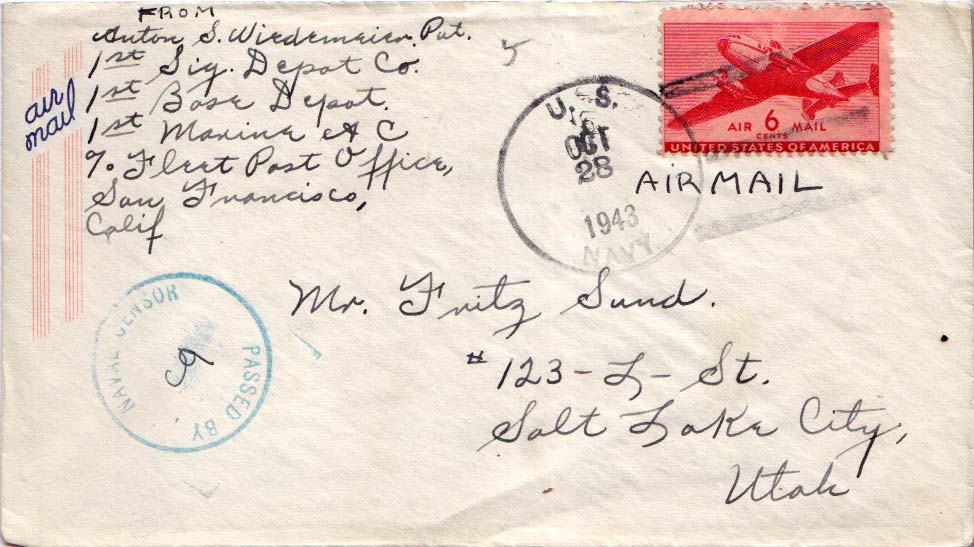 FROM
Anton S. Wiedemeier Pvt.
1st Sig. Depot Co.
1st Base Depot.
1st Marine A C
℅ Fleet Post Office,
San Francisco,
Calif
air
mail
U.S.
OCT
28
1943
NAVY
AIR 6 MAIL
CENTS
UNITED STATES OF AMERICA
AIR MAIL
PASSED BY
NAVAL CENSOR
Mr. Fritz Sund.
#123-L-St.
Salt Lake City,
Utah